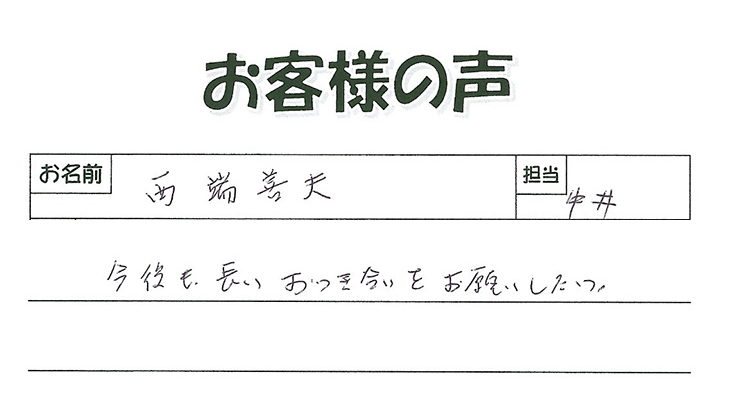 お客様の声
お名前 西端善夫 担当 中井
今後も長いおつき合いをお願いしたい。